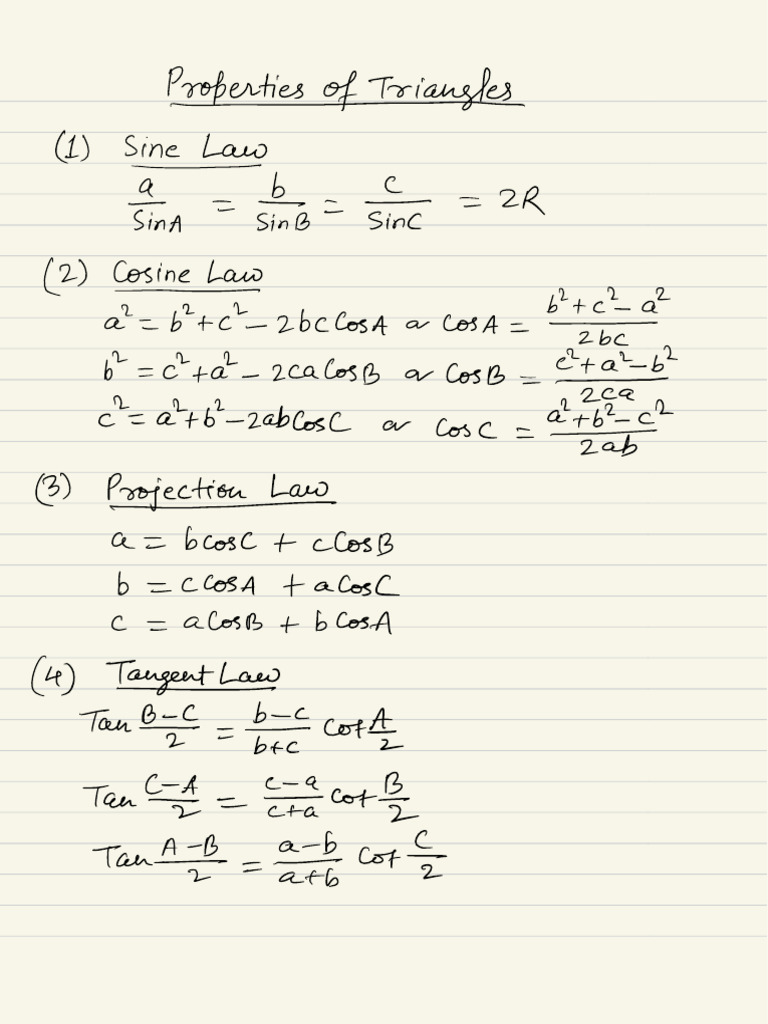 Properties of Triangles
(1) Sine Law
a/SinA = b/SinB = c/SinC = 2R
(2) Cosine Law
a² = b² + c² - 2bc CosA or CosA = (b² + c² - a²)/2bc
b² = c² + a² - 2ca CosB or CosB = (c² + a² - b²)/2ca
c² = a² + b² - 2ab CosC or CosC = (a² + b² - c²)/2ab
(3) Projection Law
a = b cosC + c CosB
b = c CosA + a CosC
c = a CosB + b CosA
(4) Tangent Law
Tan (B-C)/2 = (b-c)/(b+c) Cot A/2
Tan (C-A)/2 = (c-a)/(c+a) Cot B/2
Tan (A-B)/2 = (a-b)/(a+b) Cot C/2